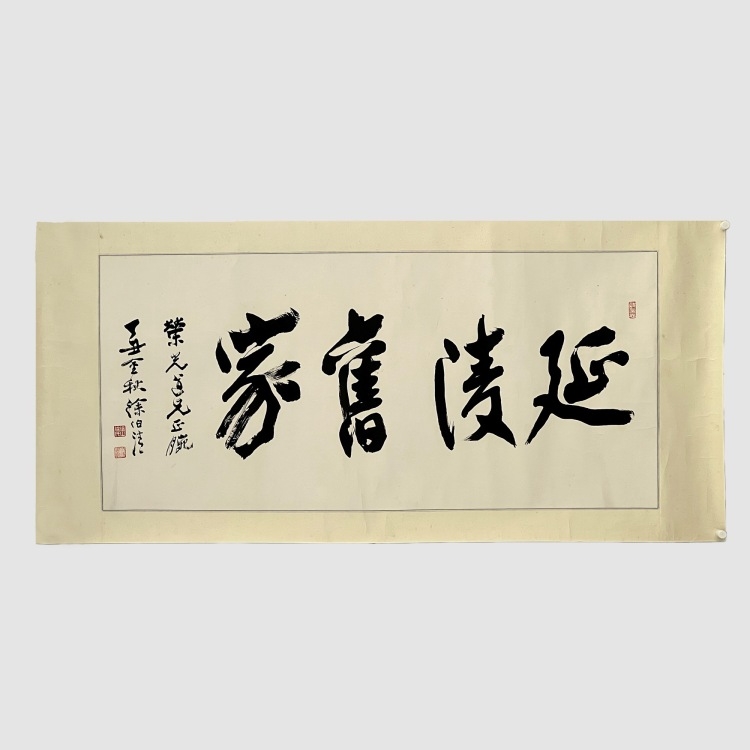 延陵舊家
榮光道兄正腕
丁丑金秋徐伯清